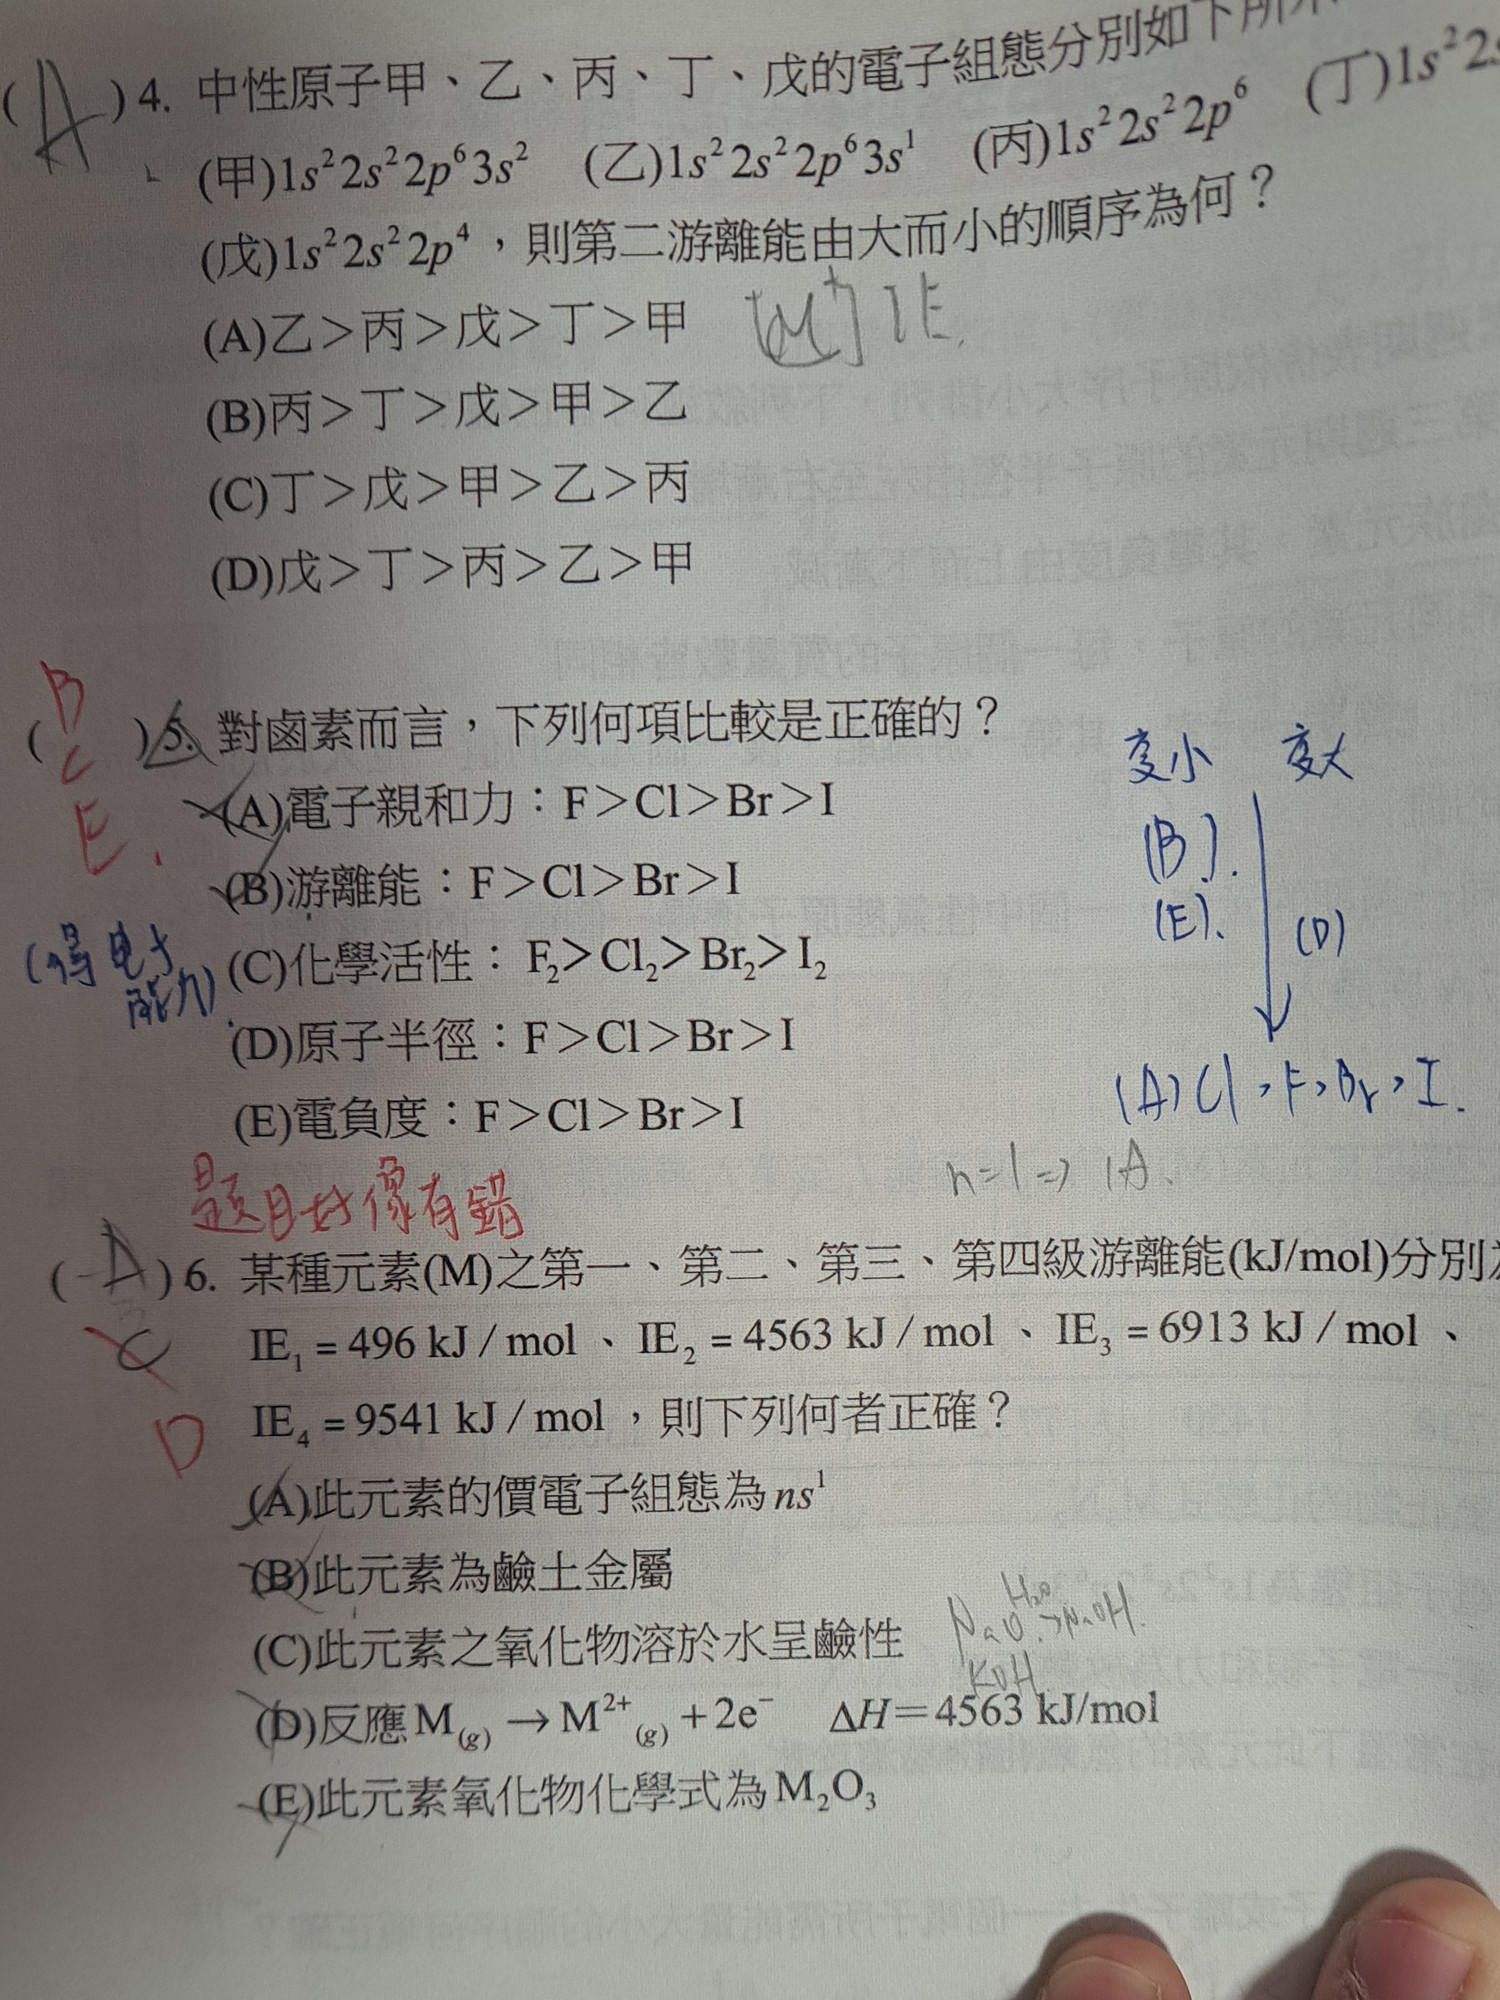 (A)4. 中性原子甲、乙、丙、丁、戊的電子組態分別如下所
(甲)1s²2s²2p⁶3s² (乙)1s²2s²2p⁶3s¹ (丙)1s²2s²2p⁶ (丁)1s²2s
(戊)1s²2s²2p⁴，則第二游離能由大而小的順序為何？
(A)乙＞丙＞戊＞丁＞甲 [M⁺] IE.
(B)丙＞丁＞戊＞甲＞乙
(C)丁＞戊＞甲＞乙＞丙
(D)戊＞丁＞丙＞乙＞甲
B C E.
( )5. 對鹵素而言，下列何項比較是正確的？
变小 变大
(A)電子親和力：F＞Cl＞Br＞I
(B).
(B)游離能：F＞Cl＞Br＞I
(E). (D)
(得电子能力).
(C)化學活性：F₂＞Cl₂＞Br₂＞I₂
(D)原子半徑：F＞Cl＞Br＞I
(A) Cl > F > Br > I.
(E)電負度：F＞Cl＞Br＞I
n=1 ⇒ 1A.
題目好像有錯
(A)6. 某種元素(M)之第一、第二、第三、第四級游離能(kJ/mol)分別
C
IE₁ = 496 kJ / mol 、 IE₂ = 4563 kJ / mol 、 IE₃ = 6913 kJ / mol 、
D
IE₄ = 9541 kJ / mol ，則下列何者正確？
(A)此元素的價電子組態為ns¹
(B)此元素為鹼土金屬
(C)此元素之氧化物溶於水呈鹼性
H₂O
NaO → NaOH.
KOH.
(D)反應M₍g₎ → M²⁺₍g₎ + 2e⁻ ΔH＝4563 kJ/mol
(E)此元素氧化物化學式為M₂O₃